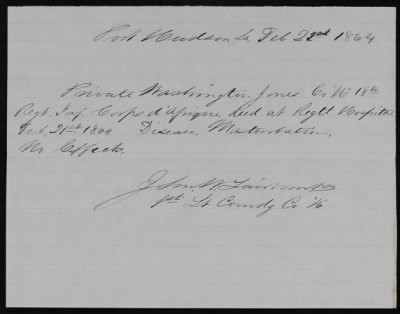 Port Hudson La Feb 22nd 1864
Private Washington Jones Co "K" 18th
Regt. Inf. Corps d'Afrique died at Regtl Hospital
Feb. 21st 1864 Disease, Masturbation.
No Effects.
John W.
1st Lt Comdg Co "K"